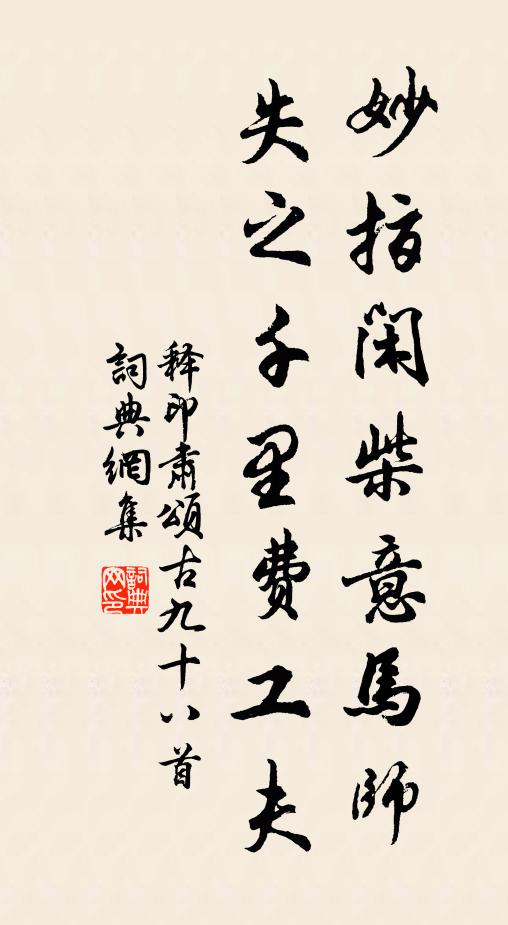 妙指閑柴意馬師
失之千里費工夫
释印肃頌古九十八首
詞典網集
詞典網印